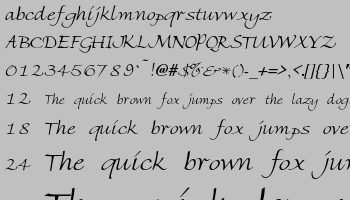 abcdefghijklmnopqrstuvwxyz
ABCDEFGHIJKLMNOPQRSTUVWXYZ
0123456789`~!@#$%&*()-_+=>,<.[]{}|\
12 The quick brown fox jumps over the lazy dog
18 The quick brown fox jumps ove
24 The quick brown fox jum